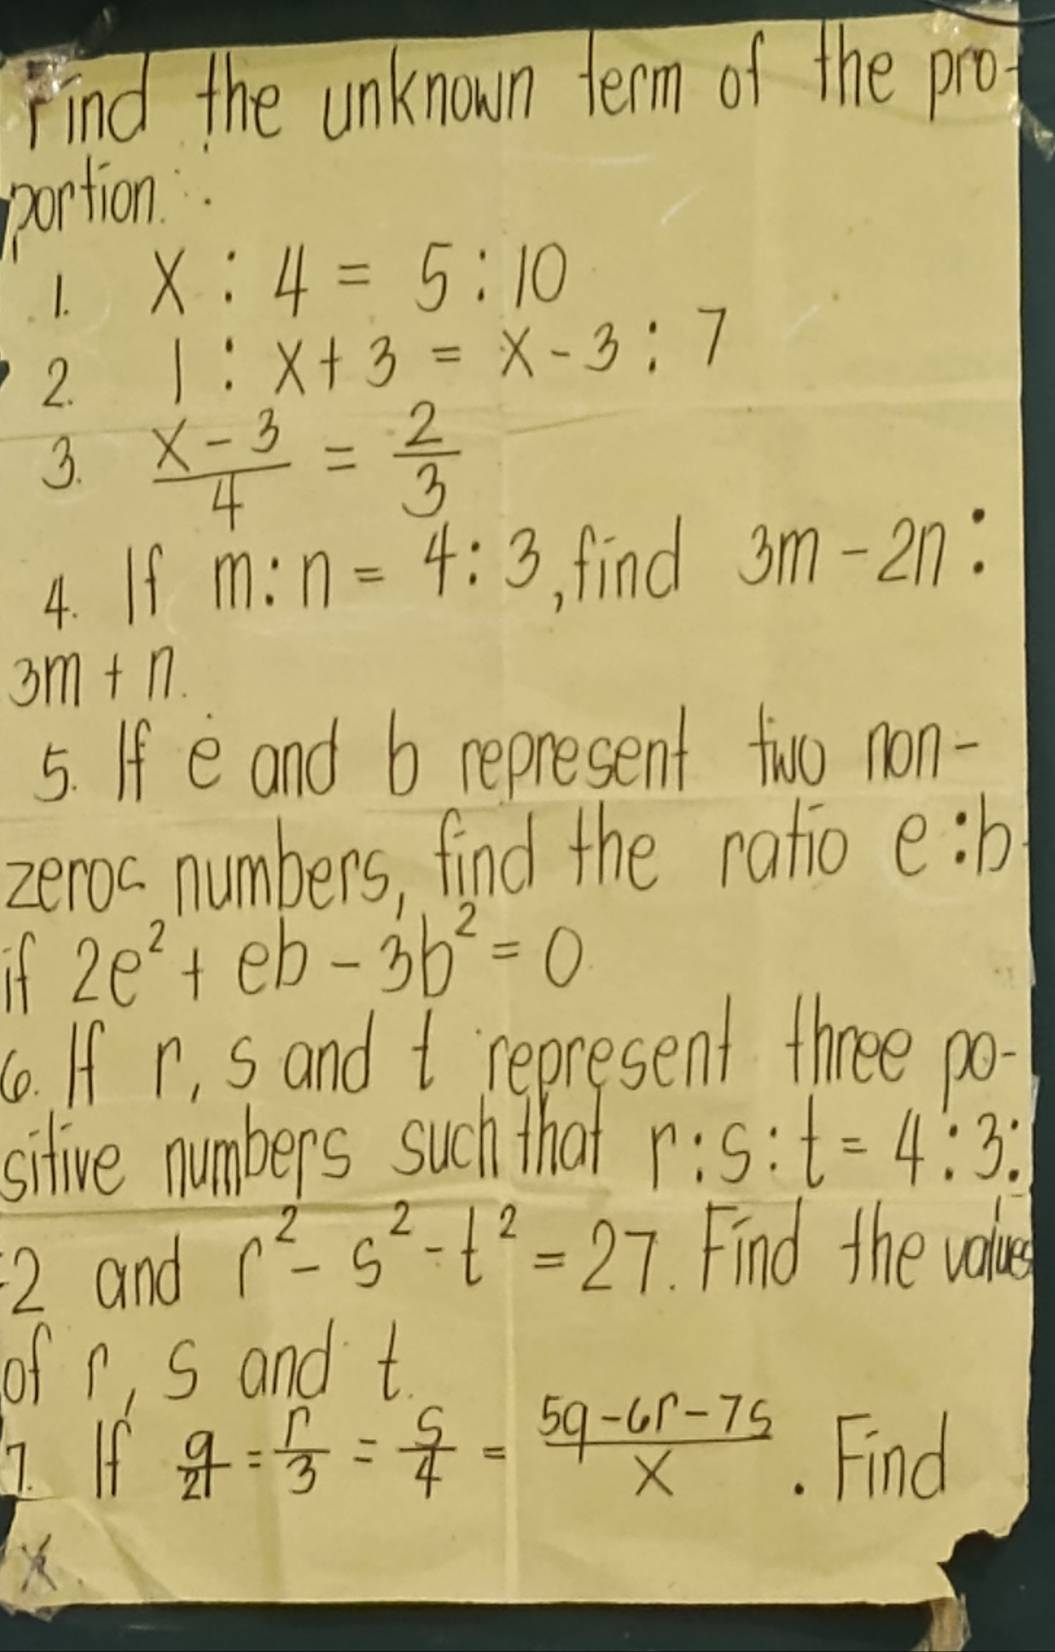 Find the unknown term of the pro-
portion.
1. X : 4 = 5 : 10
2. 1 : X + 3 = X - 3 : 7
3. \frac{X - 3}{4} = \frac{2}{3}
4. If m : n = 4 : 3, find 3m - 2n :
3m + n.
5. If e and b represent two non-
zeros numbers, find the ratio e : b
if 2e² + eb - 3b² = 0
6. If r, s and t represent three po-
sitive numbers such that r : s : t = 4 : 3 :
2 and r² - s² - t² = 27. Find the values
of r, s and t.
7. If \frac{q}{21} = \frac{r}{3} = \frac{s}{4} = \frac{5q - 6r - 7s}{X}. Find
X.